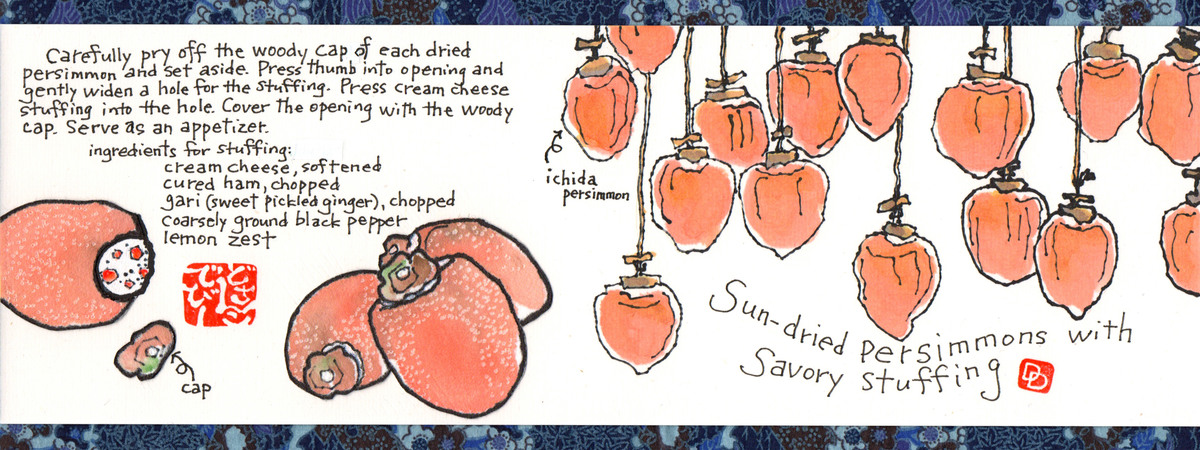 Carefully pry off the woody cap of each dried
persimmon and set aside. Press thumb into opening and
gently widen a hole for the stuffing. Press cream cheese
stuffing into the hole. Cover the opening with the woody
cap. Serve as an appetizer.
ingredients for stuffing:
cream cheese, softened
cured ham, chopped
gari (sweet pickled ginger), chopped
coarsely ground black pepper
lemon zest
cap
ichida
persimmon
Sun-dried Persimmons with
Savory Stuffing
DD